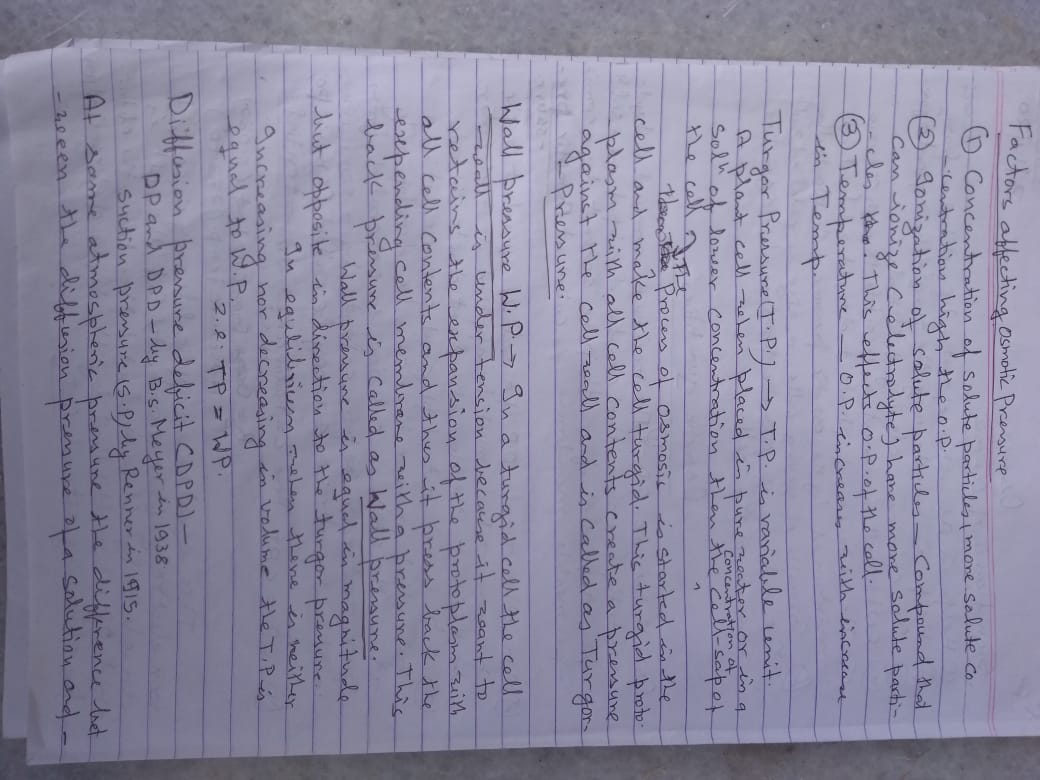 Factors affecting osmotic Pressure
① Concentration of solute particles, more solute co
-centration high the o.p.
② Ionization of solute particles — Compound that
can ionize (electrolyte) have more solute parti-
-cles. This effects O.P. of the cell.
③ Temperature — O.P. increases with increase
in Temp.
Turgor Pressure (T.P.) → T.P. is variable limit.
A plant cell when placed in pure water or in a
solⁿ of lower concentration then the concentration of cell sap of
the cell. The Process of osmosis is started in the
cell and make the cell turgid. The turgid proto-
plasm with all cell contents create a pressure
against the cell wall and is called as Turgor-
- Pressure.
Wall pressure W.P. → In a turgid cell the cell
-wall is under tension because it want to
retains the expansion of the protoplasm with
all cell contents and thus it press back the
expending cell membrane with a pressure. This
back pressure is called as Wall pressure.
Wall pressure is equal in magnitude
but opposite in direction to the turgor pressure.
In equilibrium when there is neither
increasing nor decreasing in volume the T.P is
equal to W.P.
i.e. TP = WP.
Diffusion pressure deficit (DPD) —
DP and DPD - by B.S. Meyer in 1938
Suction pressure (S.P) by Renner in 1915.
At same atmospheric pressure the difference bet
-ween the diffusion pressure of a solution and -